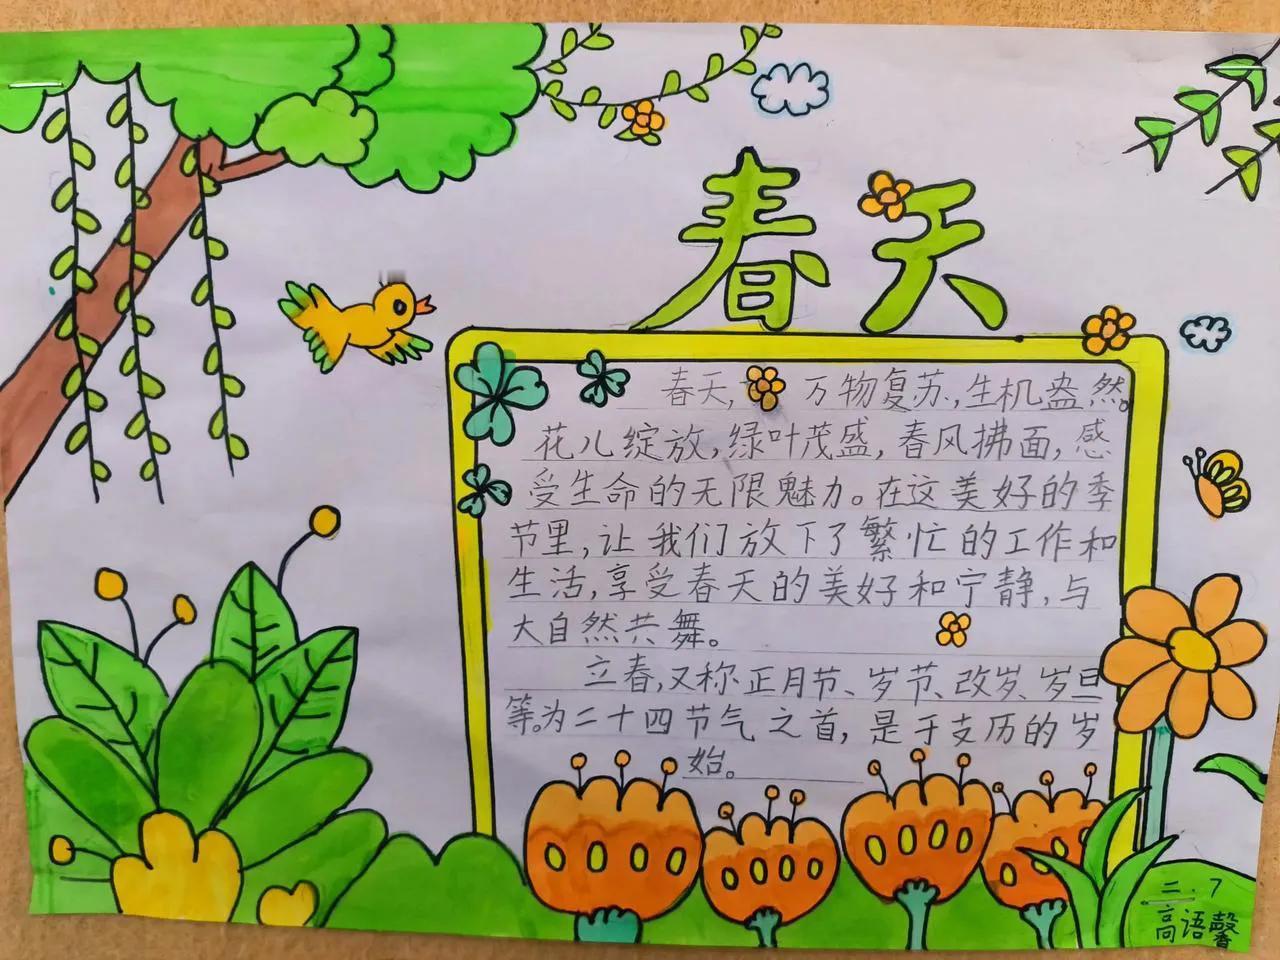 春天
春天,万物复苏,生机盎然。
花儿绽放,绿叶茂盛,春风拂面,感
受生命的无限魅力。在这美好的季
节里,让我们放下了繁忙的工作和
生活,享受春天的美好和宁静,与
大自然共舞。
立春,又称正月节、岁节、改岁、岁旦
等。为二十四节气之首,是干支历的岁
始。
二.7
高语馨